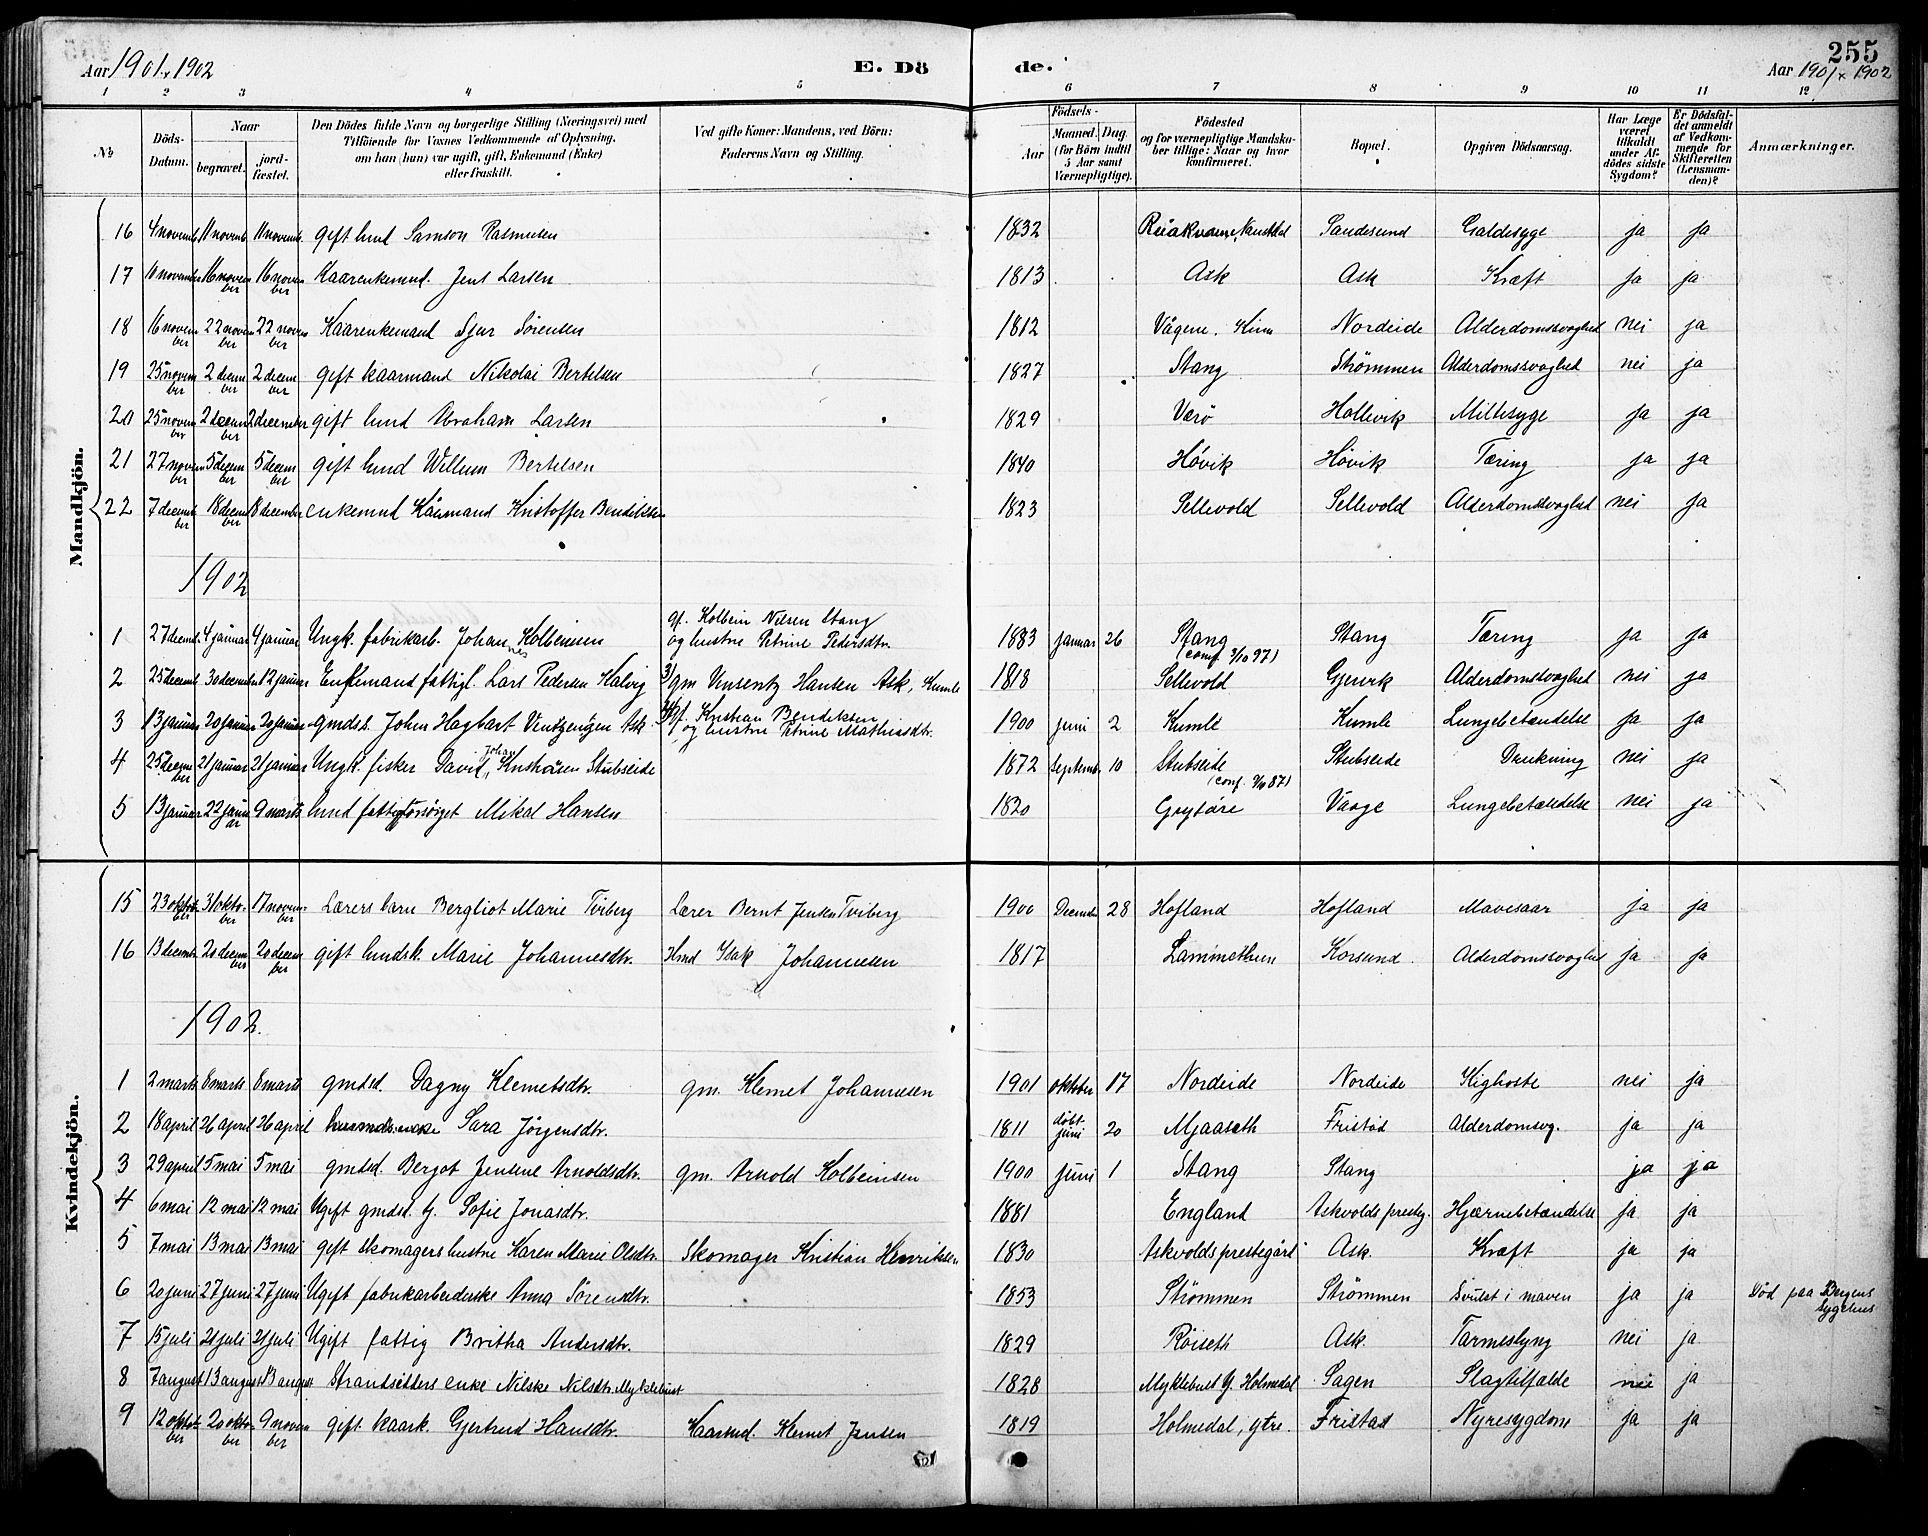 Aar 1901 & 1902
E. Dö
de.
255
Aar 1901 & 1902
1 2 3 4 5 6 7 8 9 10 11 12
№
Döds-Datum.
Naar
begravet.
jord-fæstet.
Den Dödes fulde Navn og borgerlige Stilling (Næringsvei) med
Tilföiende for Voxnes Vedkommende af Oplysning,
om han (hun) var ugift, gift, Enkemand (Enke)
eller fraskilt.
Ved gifte Koner: Mandens, ved Börn:
Faderens Navn og Stilling.
Födsels-
Aar
Maaned. Dag.
(for Börn indtil
5 Aar samt
Værnepligtige).
Födested
og for værnepligtige Mandska-
ber tillige: Naar og hvor
konfirmeret.
Bopæl.
Opgiven Dödsaarsag.
Har Læge
været
tilkaldt
under Af-
dödes sidste
Sygdom?
Er Dödsfal-
det anmeldt
af Vedkom-
mende for
Skifteretten
(Lensman-
den)?
Anmærkninger.
Mandkjön.
16 4 novemb. 11 novemb. 11 novemb. gift hmd Samson Rasmusen 1832 Naustdal Sandesund Galdesyge ja ja
17 10 november 16 november 16 november Kaarenkemnd. Jens Larsen 1813 Ask Ask Kræft ja ja
18 16 november 22 november 22 november Kaarenkemand Sjur Sörensen 1812 Vågene, Kinn Nordeide Alderdomssvaghed nei ja
19 25 november 2 december 2 december gift kaarmand Nikolai Bertelsen 1827 Stang Strömmen Alderdomssvaghed nei ja
20 25 november 2 december 2 december gift hmd Abraham Larsen 1829 Værö Hollevik Miltesyge ja ja
21 27 november 5 december 5 december gift hmd Willum Bertelsen 1840 Hövik Hövik Tæring ja ja
22 7 december 18 december 18 december enkemnd Kårmand Kristoffer Bendiksen 1823 Sellevold Sellevold Alderdomssvaghed nei ja
1902
gf. Kolbein Nilsen Stang
1 27 decemb. 4 januar 4 januar Ungk. fabrikarb. Johannes Kolbeinsen og hustru Petrine Pedersdtr. 1883 januar 26 Stang Stang Tæring ja ja
(conf. 3/10 97)
2 25 decemb. 30 december 12 januar Enkemand fattigl. Lars Pedersen Halvig 3/ gm Vinsentz Hansen Ask, Kumle 1818 Sellevold Gjervik Alderdomssvaghed nei ja
gf. Kristian Bendiksen
3 13 januar 20 januar 20 januar gmdss. Johan Hagbart Ask og hustru Petrine Mathiasdtr. 1900 juni 2 Kumle Kumle Lungebetændelse ja ja
4 25 december 21 januar 21 januar Ungk. fisker David Johan Stubseide 1872 Septemb. 10 Stubseide Stubseide Drukning nei ja
(conf. 87)
5 13 januar 22 januar 9 marts hmd fattigforsörget Mikal Hansen 1820 Vaage Lungebetændelse nei ja
Kvindekjön.
15 23 oktober 31 oktober 17 november Lærers barn Bergliot Marie Tviberg Lærer Bernt Jensen Tviberg 1900 Decemb. 28 Hofland Hofland Mavesaar ja ja
16 13 decemb. 20 december 20 december gift hmdsk. Marie Johannesdtr. Hmd Isak Johannesen 1817 Korsund Alderdomssvaghed ja ja
1902.
1 2 marts 8 marts 8 marts gmdsd. Dagny Klemetsdtr. gm. Klemet Johannesen 1901 oktober 17 Nordeide Nordeide Kighoste nei ja
2 18 april 26 april 26 april husmdsenke Sara Jörgensdtr. 1811 döbt juni 20 Mjaaseth Fristad Alderdomsvg. ja ja
3 29 april 5 mai 5 mai gmdsd. Bergot Jensine Arnoldsdtr. gm. Arnold Kolbeinsen 1900 juni 1 Stang Stang ja ja
4 6 mai 12 mai 12 mai Ugift gmdsd. tj. Sofie Jonasdtr. 1881 England Askvolds presteg. Hjernebetændelse ja ja
5 7 mai 13 mai 13 mai gift Skomagers hustru Karen Marie Olsdtr. Skomager Kristian Henriksen 1830 Askvolds prestegård Ask. Kræft ja ja
6 20 juni 27 juni 27 juni Ugift fabrikarbeiderske Anna Sörensdtr. 1853 Strömmen Strömmen Svulst i maven ja ja Död paa Bergens Sygehus
7 15 juli 21 juli 21 juli Ugift fattig Britha Andersdtr. 1829 Röiseth Ask. Tarmeslyng nei ja
8 7 august 13 august 13 august Strandsidders enke Nilske Nilsdtr. Myklebust 1828 Myklebust Y. Holmedal Sagen Slagtilfælde nei ja
9 12 oktober 20 oktober 9 november gift kaark. Gjertrud Hansdtr. Kaarmd. Klemet Jensen 1819 Holmedal, ytre. Fristad Nyresygdom ja ja